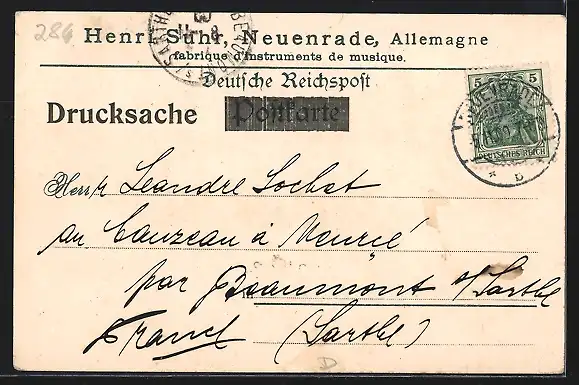 286
Henri Suhr, Neuenrade, Allemagne
fabrique d'instruments de musique.
Deutsche Reichspost
Drucksache Postkarte
5 5
DEUTSCHES REICH
NEUENRADE
* b
Herrn Leandre Lochet
au Cauzeau à Meurcé
par Beaumont s/ Sarthe
France (Sarthe)